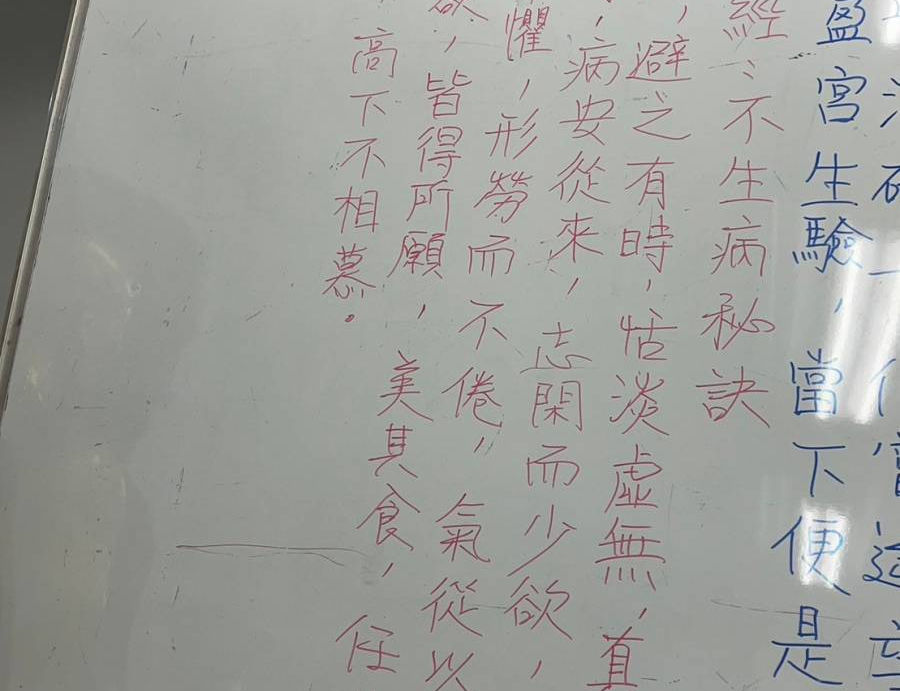 盈宮生驗，當下便是
經：不生病秘訣
，避之有時，恬淡虛無，真
，病安從來，志閑而少欲，
懼，形勞而不倦，氣從以
欲，皆得所願，美其食，任
高下不相慕。